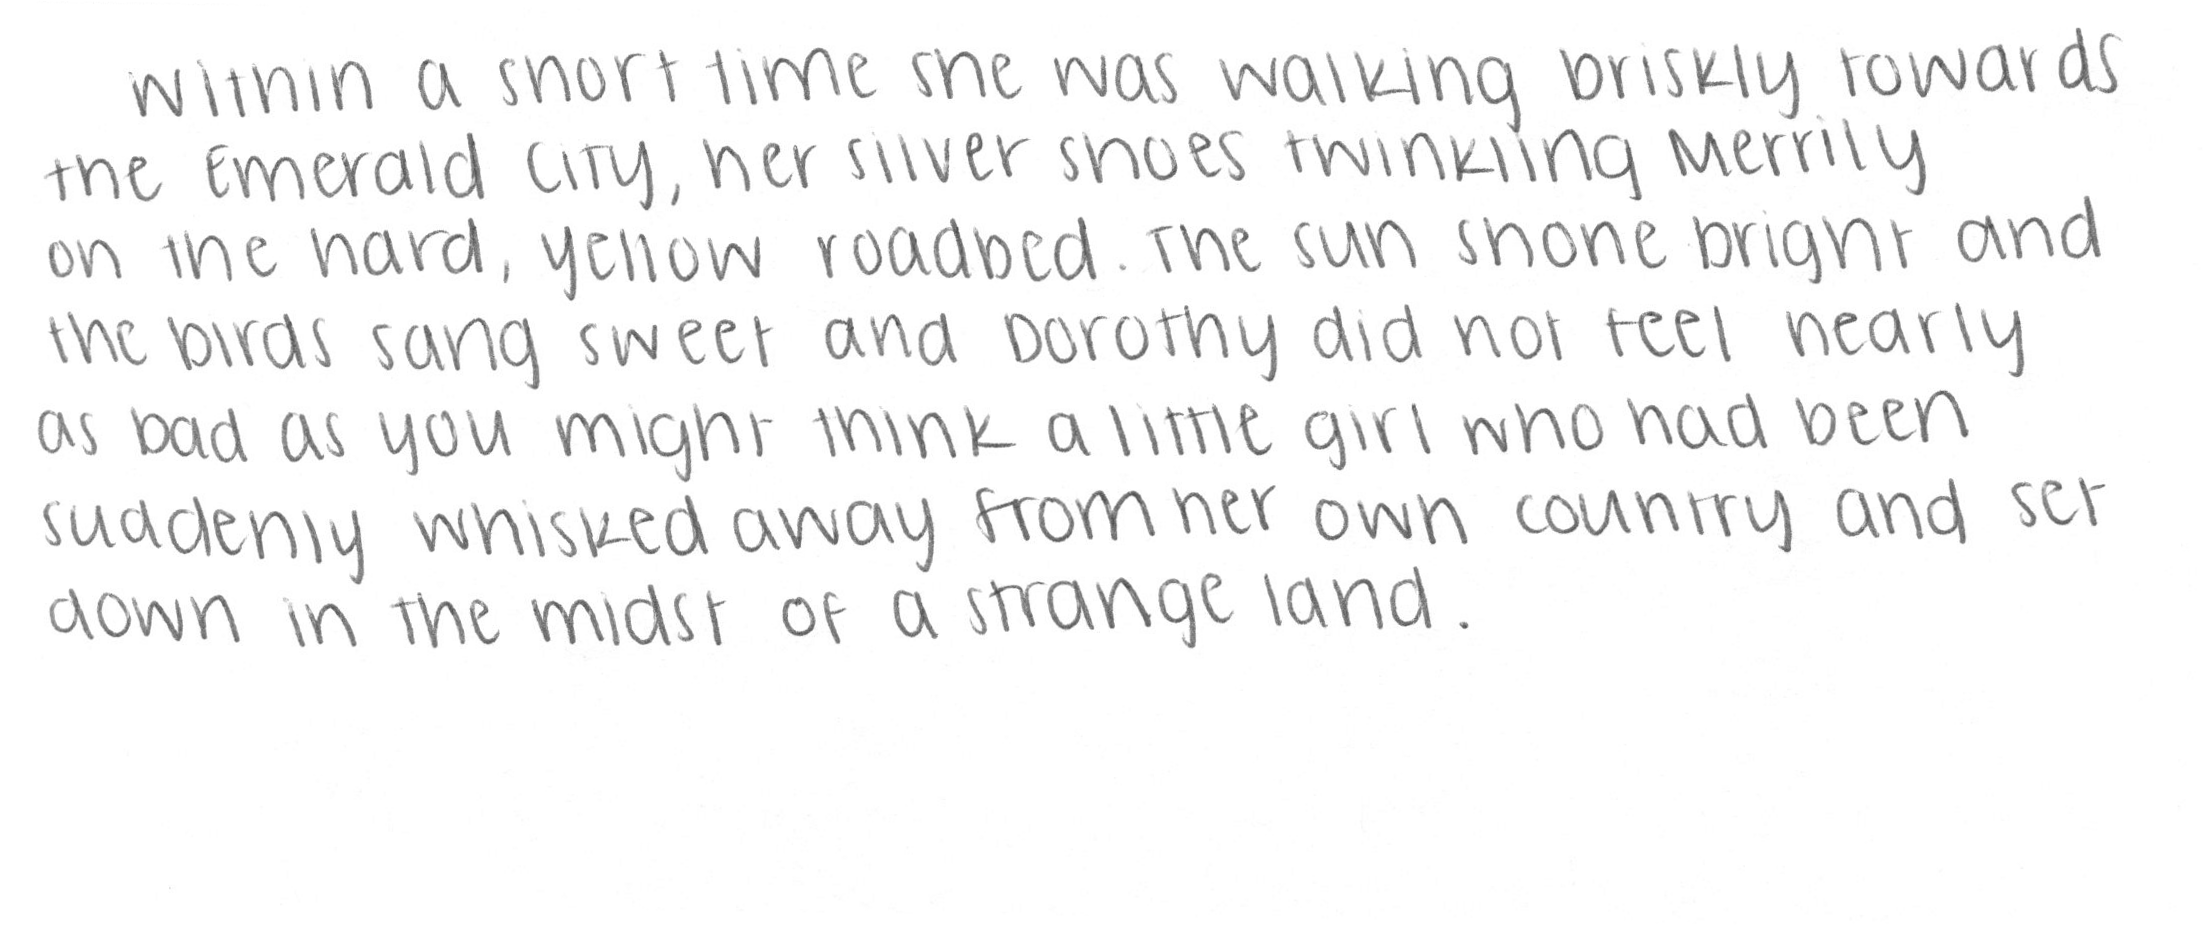 Within a short time she was walking briskly towards
the Emerald City, her silver shoes twinkling Merrily
on the hard, yellow roadbed. The sun shone bright and
the birds sang sweet and Dorothy did not feel nearly
as bad as you might think a little girl who had been
suddenly whisked away from her own country and set
down in the midst of a strange land.